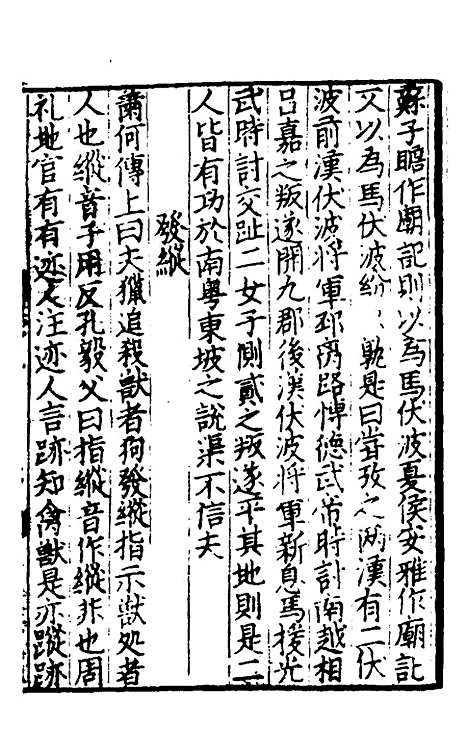 蘇子瞻作廟記則以為馬伏波夏侯安雅作廟記
又以為馬伏波紛孰是曰嘗攷之两漢有二伏
波前漢伏波將軍邳離路愽德武帝時討南越相
吕嘉之叛遂開九郡後漢伏波將軍新息馬援光
武時討交趾二女子側貳之叛遂平其地則是二
人皆有功於南粤東坡之説渠不信夫
發縱
蕭何傳上曰夫獵追殺獸者狗發縱指示獸処者
人也縱音子用反孔毅父曰指縱音作縱非也周
礼地官有有迹人注迹人言跡知禽獸是亦蹤跡